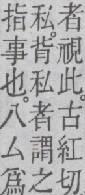 者視此。古紅切
私。背私者謂之
指事也。八厶爲